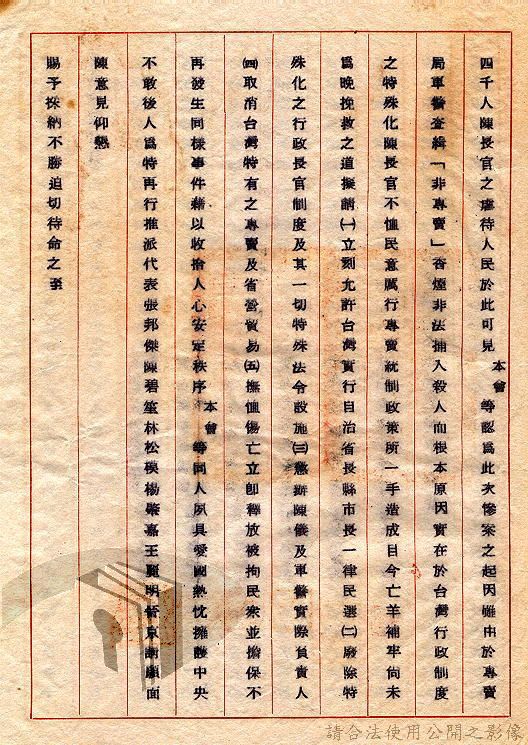 四千人陳長官之虐待人民於此可見本會等認爲此次慘案之起因雖由於專賣
局軍警查緝「非專賣」香煙非法捕入殺人而根本原因實在於台灣行政制度
之特殊化陳長官不恤民意厲行專賣統制政策所一手造成目今亡羊補牢尙未
爲晚挽救之道擬請㈠立刻允許台灣實行自治省長縣市長一律民選㈡廢除特
殊化之行政長官制度及其一切特殊法令設施㈢懲辦陳儀及軍警實際負責人
㈣取消台灣特有之專賣及省營貿易㈤撫恤傷亡立卽釋放被拘民衆並擔保不
再發生同樣事件藉以收拾人心安定秩序本會等同人夙具愛國熱忱擁護中央
不敢後人爲特再行推派代表張邦傑陳碧笙林松模楊肇嘉王麗明晉京謝顧面
陳意見仰懇
賜予採納不勝迫切待命之至
請合法使用公開之影像